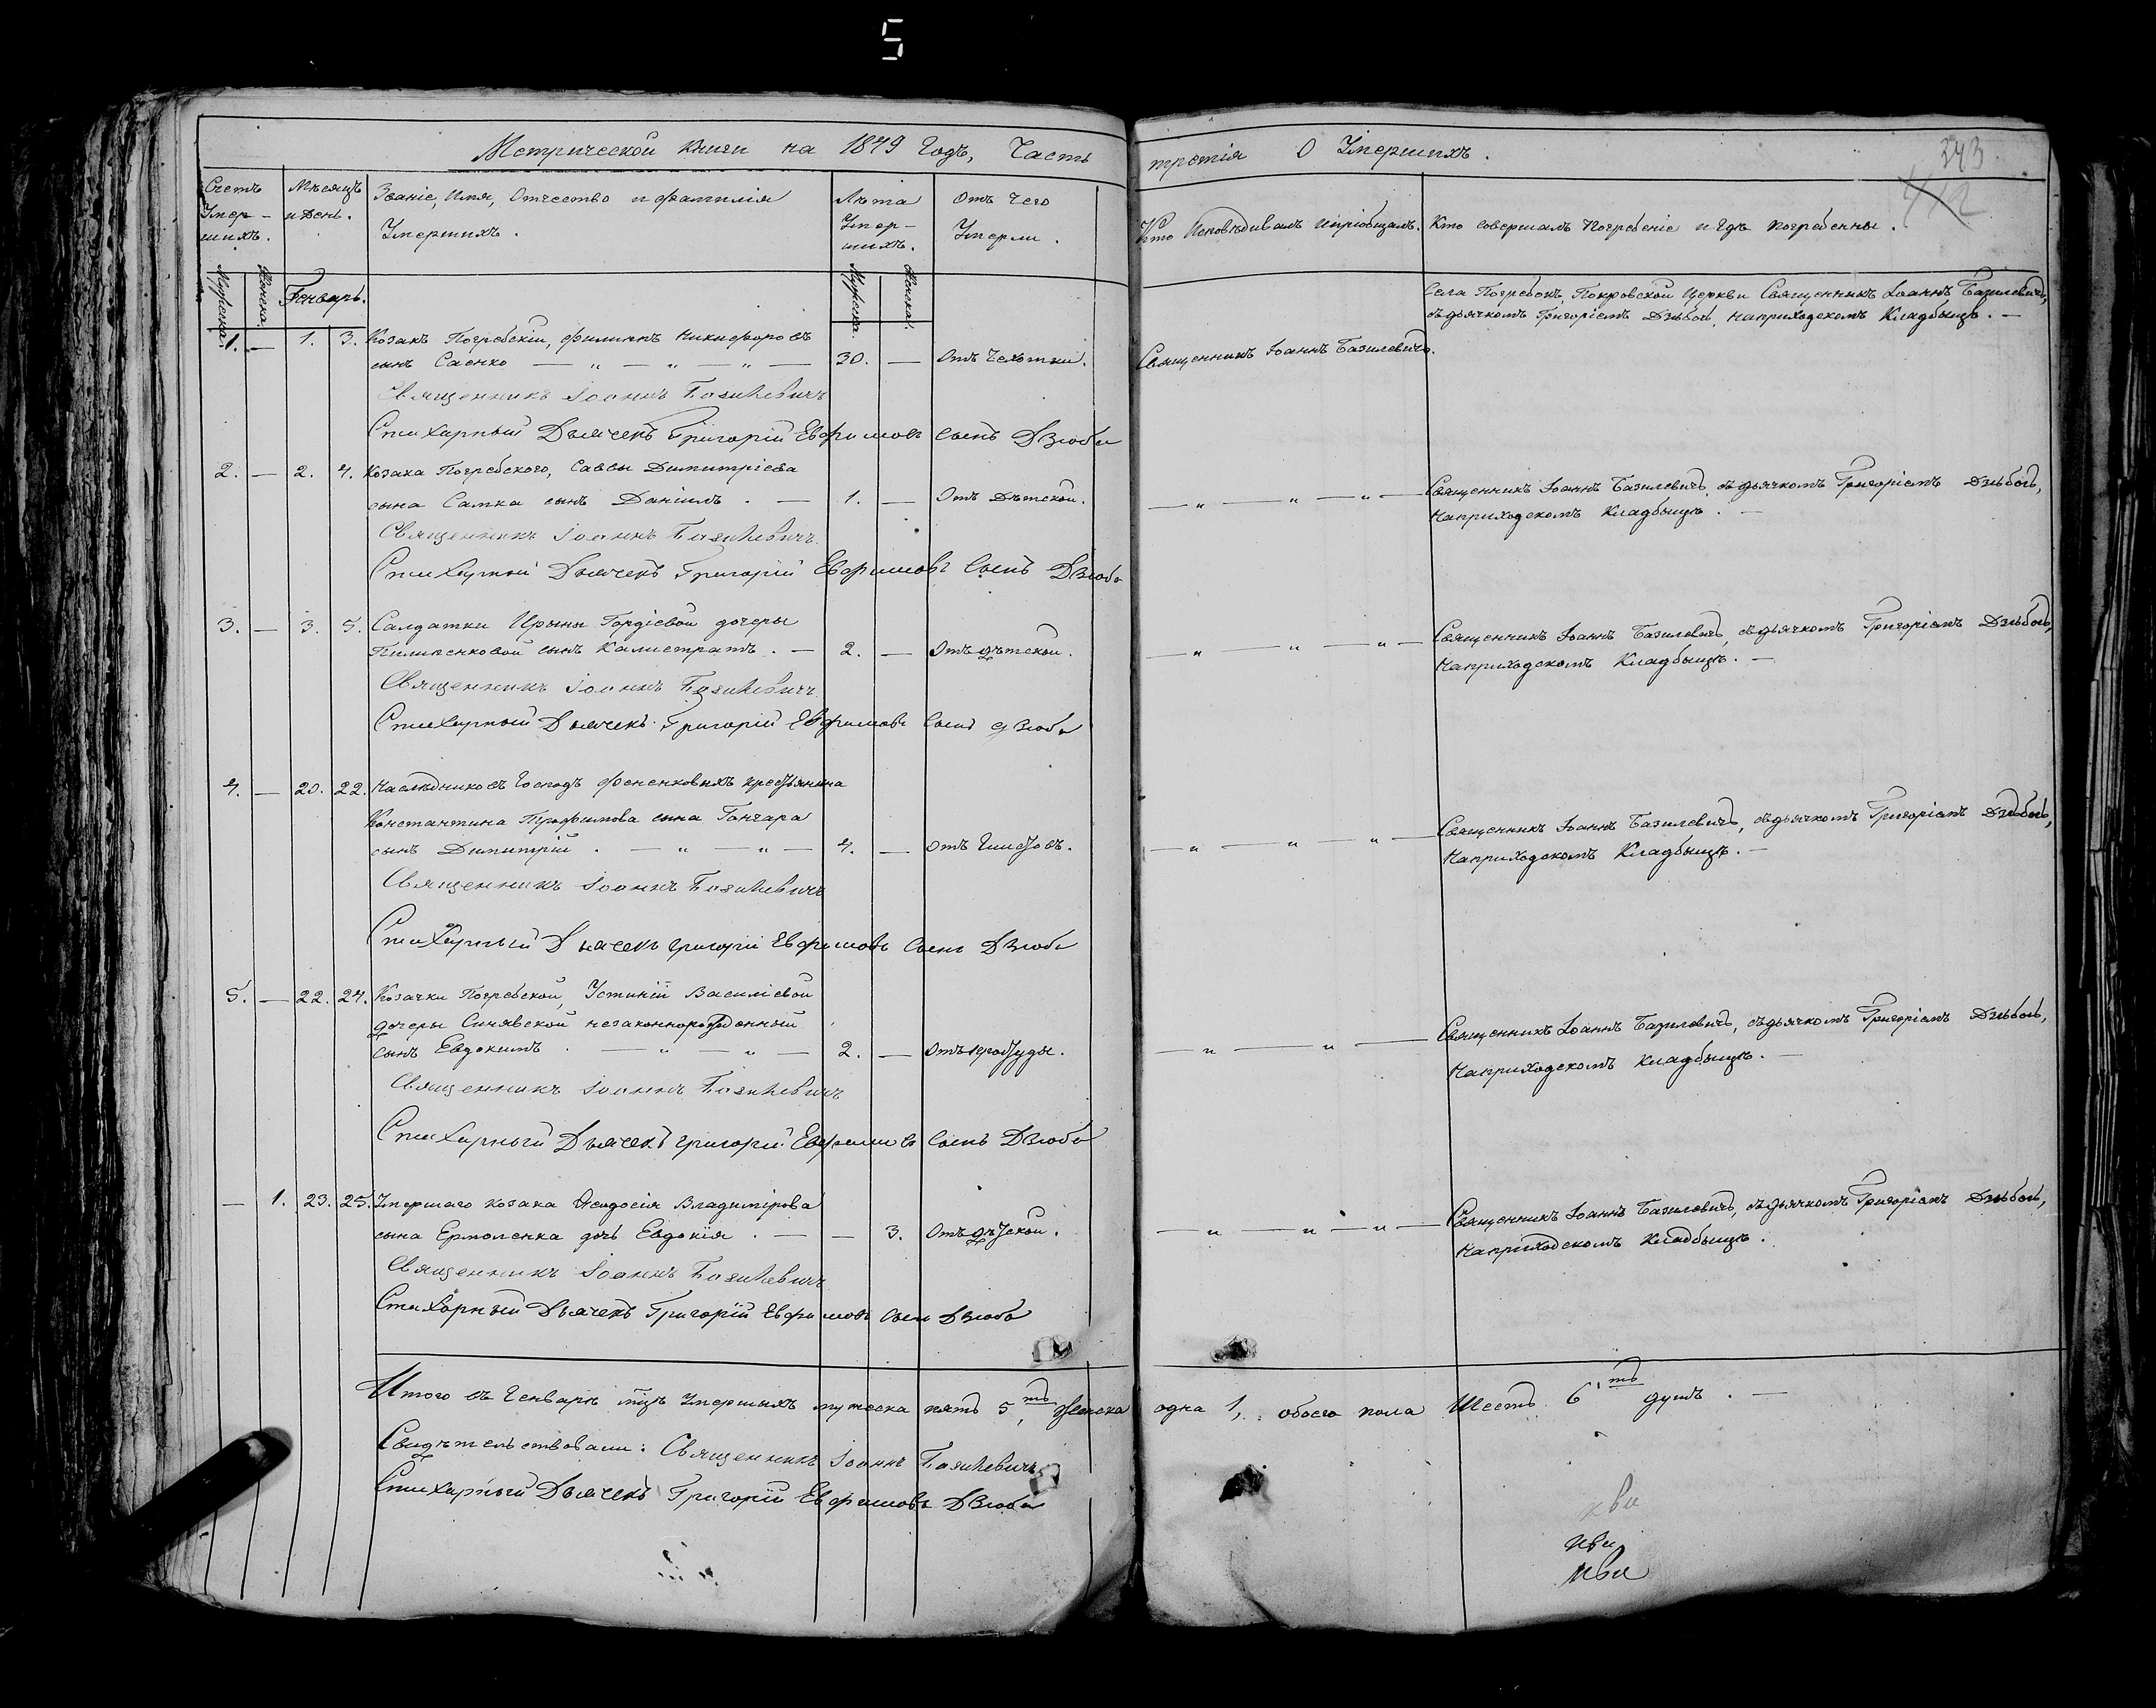 5
Метрической книги на 1849 Годъ, Часть третія О Умершихъ.
343
412
Счетъ Умер-шихъ.
Мѣсяцъ и День.
Званіе, Имя, Отчество и фамилія Умершихъ.
Лѣта Умер-шихъ.
Отъ Чего Умерли.
Кто Исповѣдывалъ ипріобщалъ.
Кто совершалъ Погребеніе и Гдѣ погребенны.
Мужеска.
Женска.
Генварь.
Мужеска.
Женска.
Села Погребокъ, Покровской Церкви Священникъ Іоаннъ Базилевичъ,
съдьячкомъ Григоріемъ Дзюбою, Наприходскомъ Кладбыщѣ. —
1. — 1. 3. Козакъ Погребскій, филиппъ Никифоровъ
сынъ Саенко — „ — „ — „ — 30. — Отъ Чехотки. Священникъ Іоаннъ Базилевичъ.
Священникъ Іоаннъ Базилевичъ
Стихарный Дьячекъ Григорій Евфимовъ сынъ Дзюба
2. — 2. 4. Козака Погребского, Саввы Димитріева
сына Самка сынъ Даніилъ. — 1. — Отъ Дѣтской. — „ — „ — „ — Священникъ Іоаннъ Базилевичъ, съдьячкомъ Григоріемъ Дзюбою,
Наприходскомъ Кладбыщѣ. —
Священникъ Іоаннъ Базилевичъ
Стихарный Дьячекъ Григорій Евфимовъ сынъ Дзюба
3. — 3. 5. Салдатки Ирыны Гордіевой дочеры
Пилипенковой сынъ Калистратъ. — 2. — Отъ дѣтской. — „ — „ — „ — Священникъ Іоаннъ Базилевичъ, съдьячкомъ Григоріемъ Дзюбою,
Наприходскомъ Кладбыщѣ. —
Священникъ Іоаннъ Базилевичъ
Стихарный Дьячекъ Григорій Евфимовъ сынъ Дзюба
4. — 20. 22. Наслѣдниковъ Господъ Фененковыхъ крестьянина
Константина Трофимова сына Гончара
сынъ Димитрій. — „ — „ — 4. — Отъ Глистовъ. — „ — „ — „ — Священникъ Іоаннъ Базилевичъ, съдьячкомъ Григоріемъ Дзюбою,
Наприходскомъ Кладбыщѣ. —
Священникъ Іоаннъ Базилевичъ
Стихарный Дьячекъ Григорій Евфимовъ сынъ Дзюба
5. — 22. 24. Козачки Погребской, Устиніи Василіевой
дочеры Синявской незаконнорожденный
сынъ Евдокимъ. — „ — „ — 2. — Отъ простуды. — „ — „ — Священникъ Іоаннъ Базилевичъ, съдьячкомъ Григоріемъ Дзюбою,
Наприходскомъ Кладбыщѣ. —
Священникъ Іоаннъ Базилевичъ
Стихарный Дьячекъ Григорій Евфимовъ сынъ Дзюба
— 1. 23. 25. Умершаго козака Феодосія Владимірова
сына Ермоленка дочь Евдокія. — — 3. Отъ дѣтской. — „ — „ — „ — Священникъ Іоаннъ Базилевичъ, съдьячкомъ Григоріемъ Дзюбою,
Наприходскомъ Кладбыщѣ.
Священникъ Іоаннъ Базилевичъ
Стихарный Дьячекъ Григорій Евфимовъ сынъ Дзюба
Итого въ Генварѣ мцѣ Умершихъ мужеска пять 5ть, женска одна 1, обоего пола Шесть 6ть душъ. —
Свидѣтельствовали: Священникъ Іоаннъ Базилевичъ
Стихарный Дьячекъ Григорій Евфимовъ Дзюба